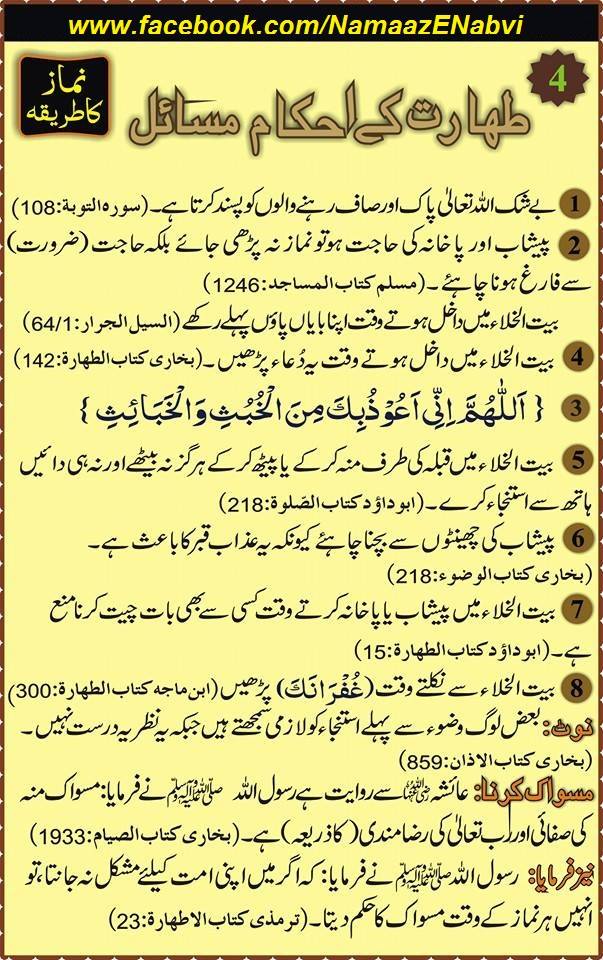 www.facebook.com/NamaazENabvi
4
طہارت کے احکام مسائل
نماز
کا طریقہ
1 بے شک اللہ تعالیٰ پاک اور صاف رہنے والوں کو پسند کرتا ہے۔(سورہ التوبة:108)
2 پیشاب اور پاخانہ کی حاجت ہو تو نماز نہ پڑھی جائے بلکہ حاجت (ضرورت)
سے فارغ ہونا چاہئے۔(مسلم کتاب المساجد:1246)
بیت الخلاء میں داخل ہوتے وقت اپنا بایاں پاؤں پہلے رکھے (السیل الجرار:64/1)
4 بیت الخلاء میں داخل ہوتے وقت یہ دُعاء پڑھیں۔(بخاری کتاب الطهارة:142)
3 { اَللّٰهُمَّ اِنِّی اَعُوْذُبِکَ مِنَ الْخُبُثِ وَالْخَبَائِثِ }
5 بیت الخلاء میں قبلہ کی طرف منہ کر کے یا پیٹھ کر کے ہرگز نہ بیٹھے اور نہ ہی دائیں
ہاتھ سے استنجاء کرے۔(ابوداؤد کتاب الصّلوة:218)
6 پیشاب کی چھینٹوں سے بچنا چاہئے کیونکہ یہ عذاب قبر کا باعث ہے۔
(بخاری کتاب الوضوء:218)
7 بیت الخلاء میں پیشاب یا پاخانہ کرتے وقت کسی سے بھی بات چیت کرنا منع
ہے۔(ابوداؤد کتاب الطهارة:15)
8 بیت الخلاء سے نکلتے وقت (غُفْرَانَکَ) پڑھیں (ابن ماجه کتاب الطهارة:300)
نوٹ: بعض لوگ وضوء سے پہلے استنجاء کو لازمی سمجھتے ہیں جبکہ یہ نظریہ درست نہیں۔
(بخاری کتاب الاذان:859)
مسواک کرنا: عائشہ رضی اللہ عنہا سے روایت ہے رسول اللہ ﷺ نے فرمایا: مسواک منہ
کی صفائی اور رب تعالیٰ کی رضامندی (کا ذریعہ) ہے۔(بخاری کتاب الصیام:1933)
نیز فرمایا: رسول اللہ ﷺ نے فرمایا: کہ اگر میں اپنی امت کیلئے مشکل نہ جانتا، تو
انہیں ہر نماز کے وقت مسواک کا حکم دیتا۔(ترمذی کتاب الاطهارة:23)